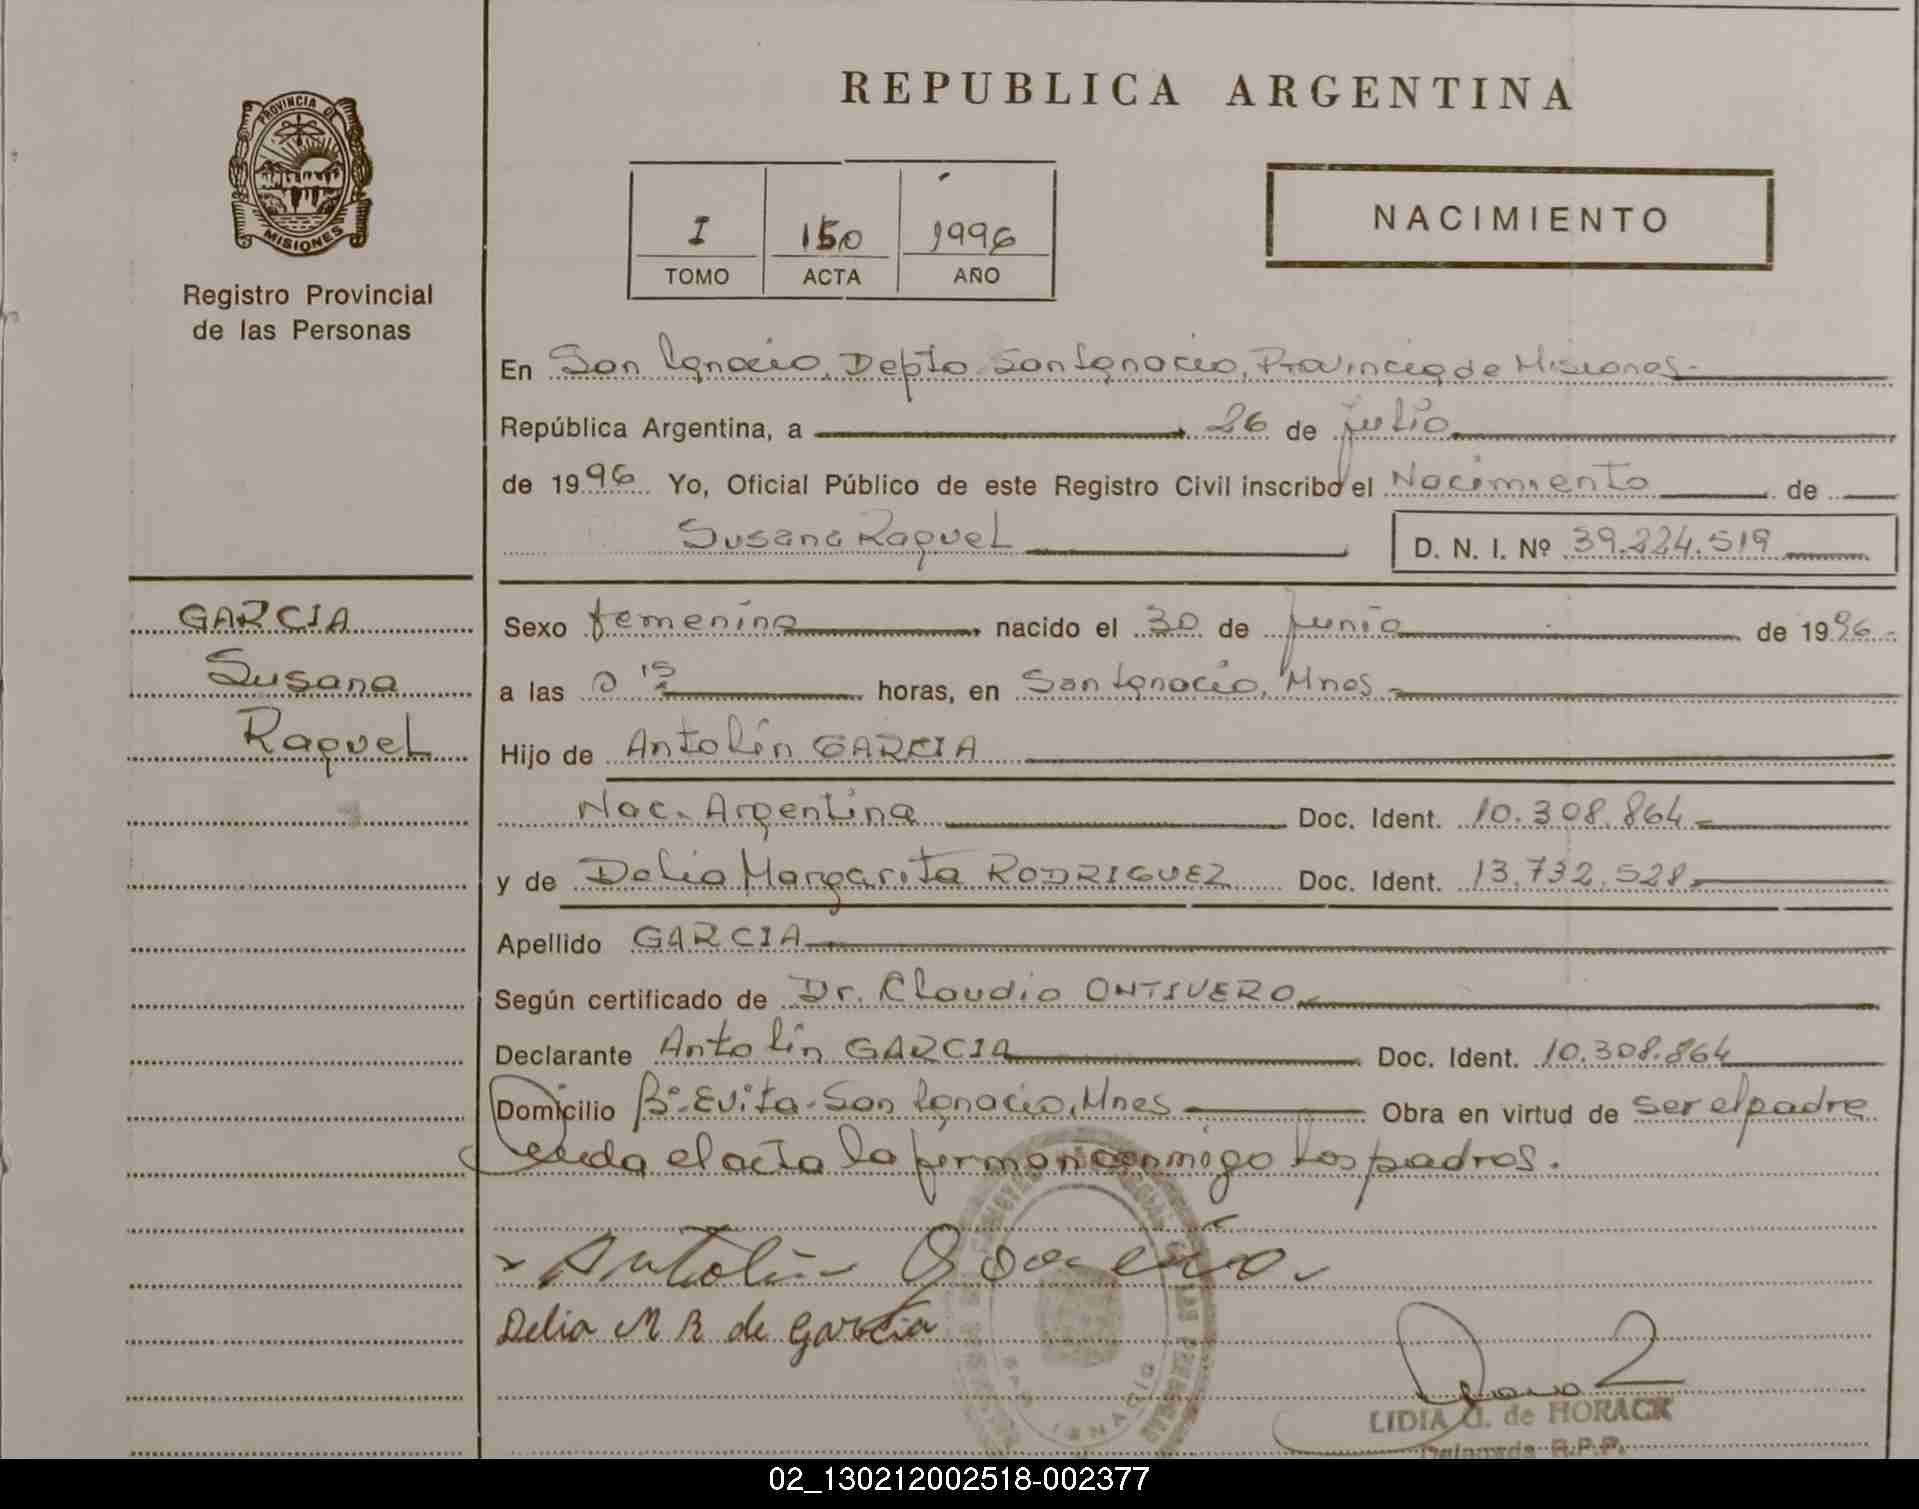 PROVINCIA DE
MISIONES
Registro Provincial
de las Personas
GARCIA
Susana
Raquel
REPUBLICA ARGENTINA
I 150 1996
TOMO ACTA AÑO
NACIMIENTO
En San Ignacio, Depto San Ignacio, Provincia de Misiones.-
República Argentina, a 26 de julio
de 1996 Yo, Oficial Público de este Registro Civil inscribo el Nacimiento de
Susana Raquel D. N. I. Nº 39.224.519
Sexo femenino nacido el 30 de junio de 1996.-
a las 0 15 horas, en San Ignacio, Mnes.
Hijo de Antolín GARCIA
Nac. Argentina Doc. Ident. 10.308.864
y de Delia Margarita RODRIGUEZ Doc. Ident. 13.732.528
Apellido GARCIA
Según certificado de Dr. Claudio ONTIVERO
Declarante Antolín GARCIA Doc. Ident. 10.308.864
Domicilio Bº. Evita. San Ignacio, Mnes Obra en virtud de ser el padre
Leida el acta la firman conmigo los padres.
Antolin Garcia
Delia M R de Garcia
SAN IGNACIO
LIDIA G. de HORACK
Delegada R.P.P.
02_130212002518-002377